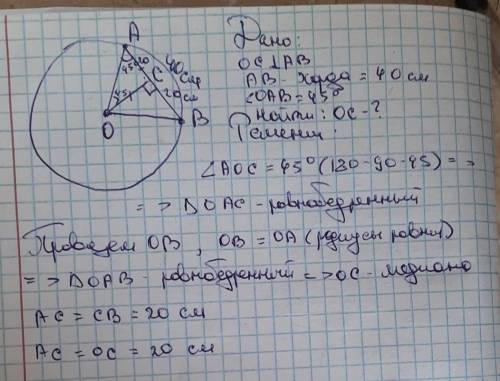 A
45°
20
C
40 см
20 см
45
O
B
Дано:
OC⊥AB
AB - хорда = 40 см
∠OAB = 45°
Найти: OC - ?
Решение:
∠AOC = 45° (180-90-45) = >
= > ∆OAC - равнобедренный
Проведем OB, OB = OA (радиусы равны)
= > ∆OAB - равнобедренный = > OC - медиана
AC = CB = 20 см
AC = OC = 20 см